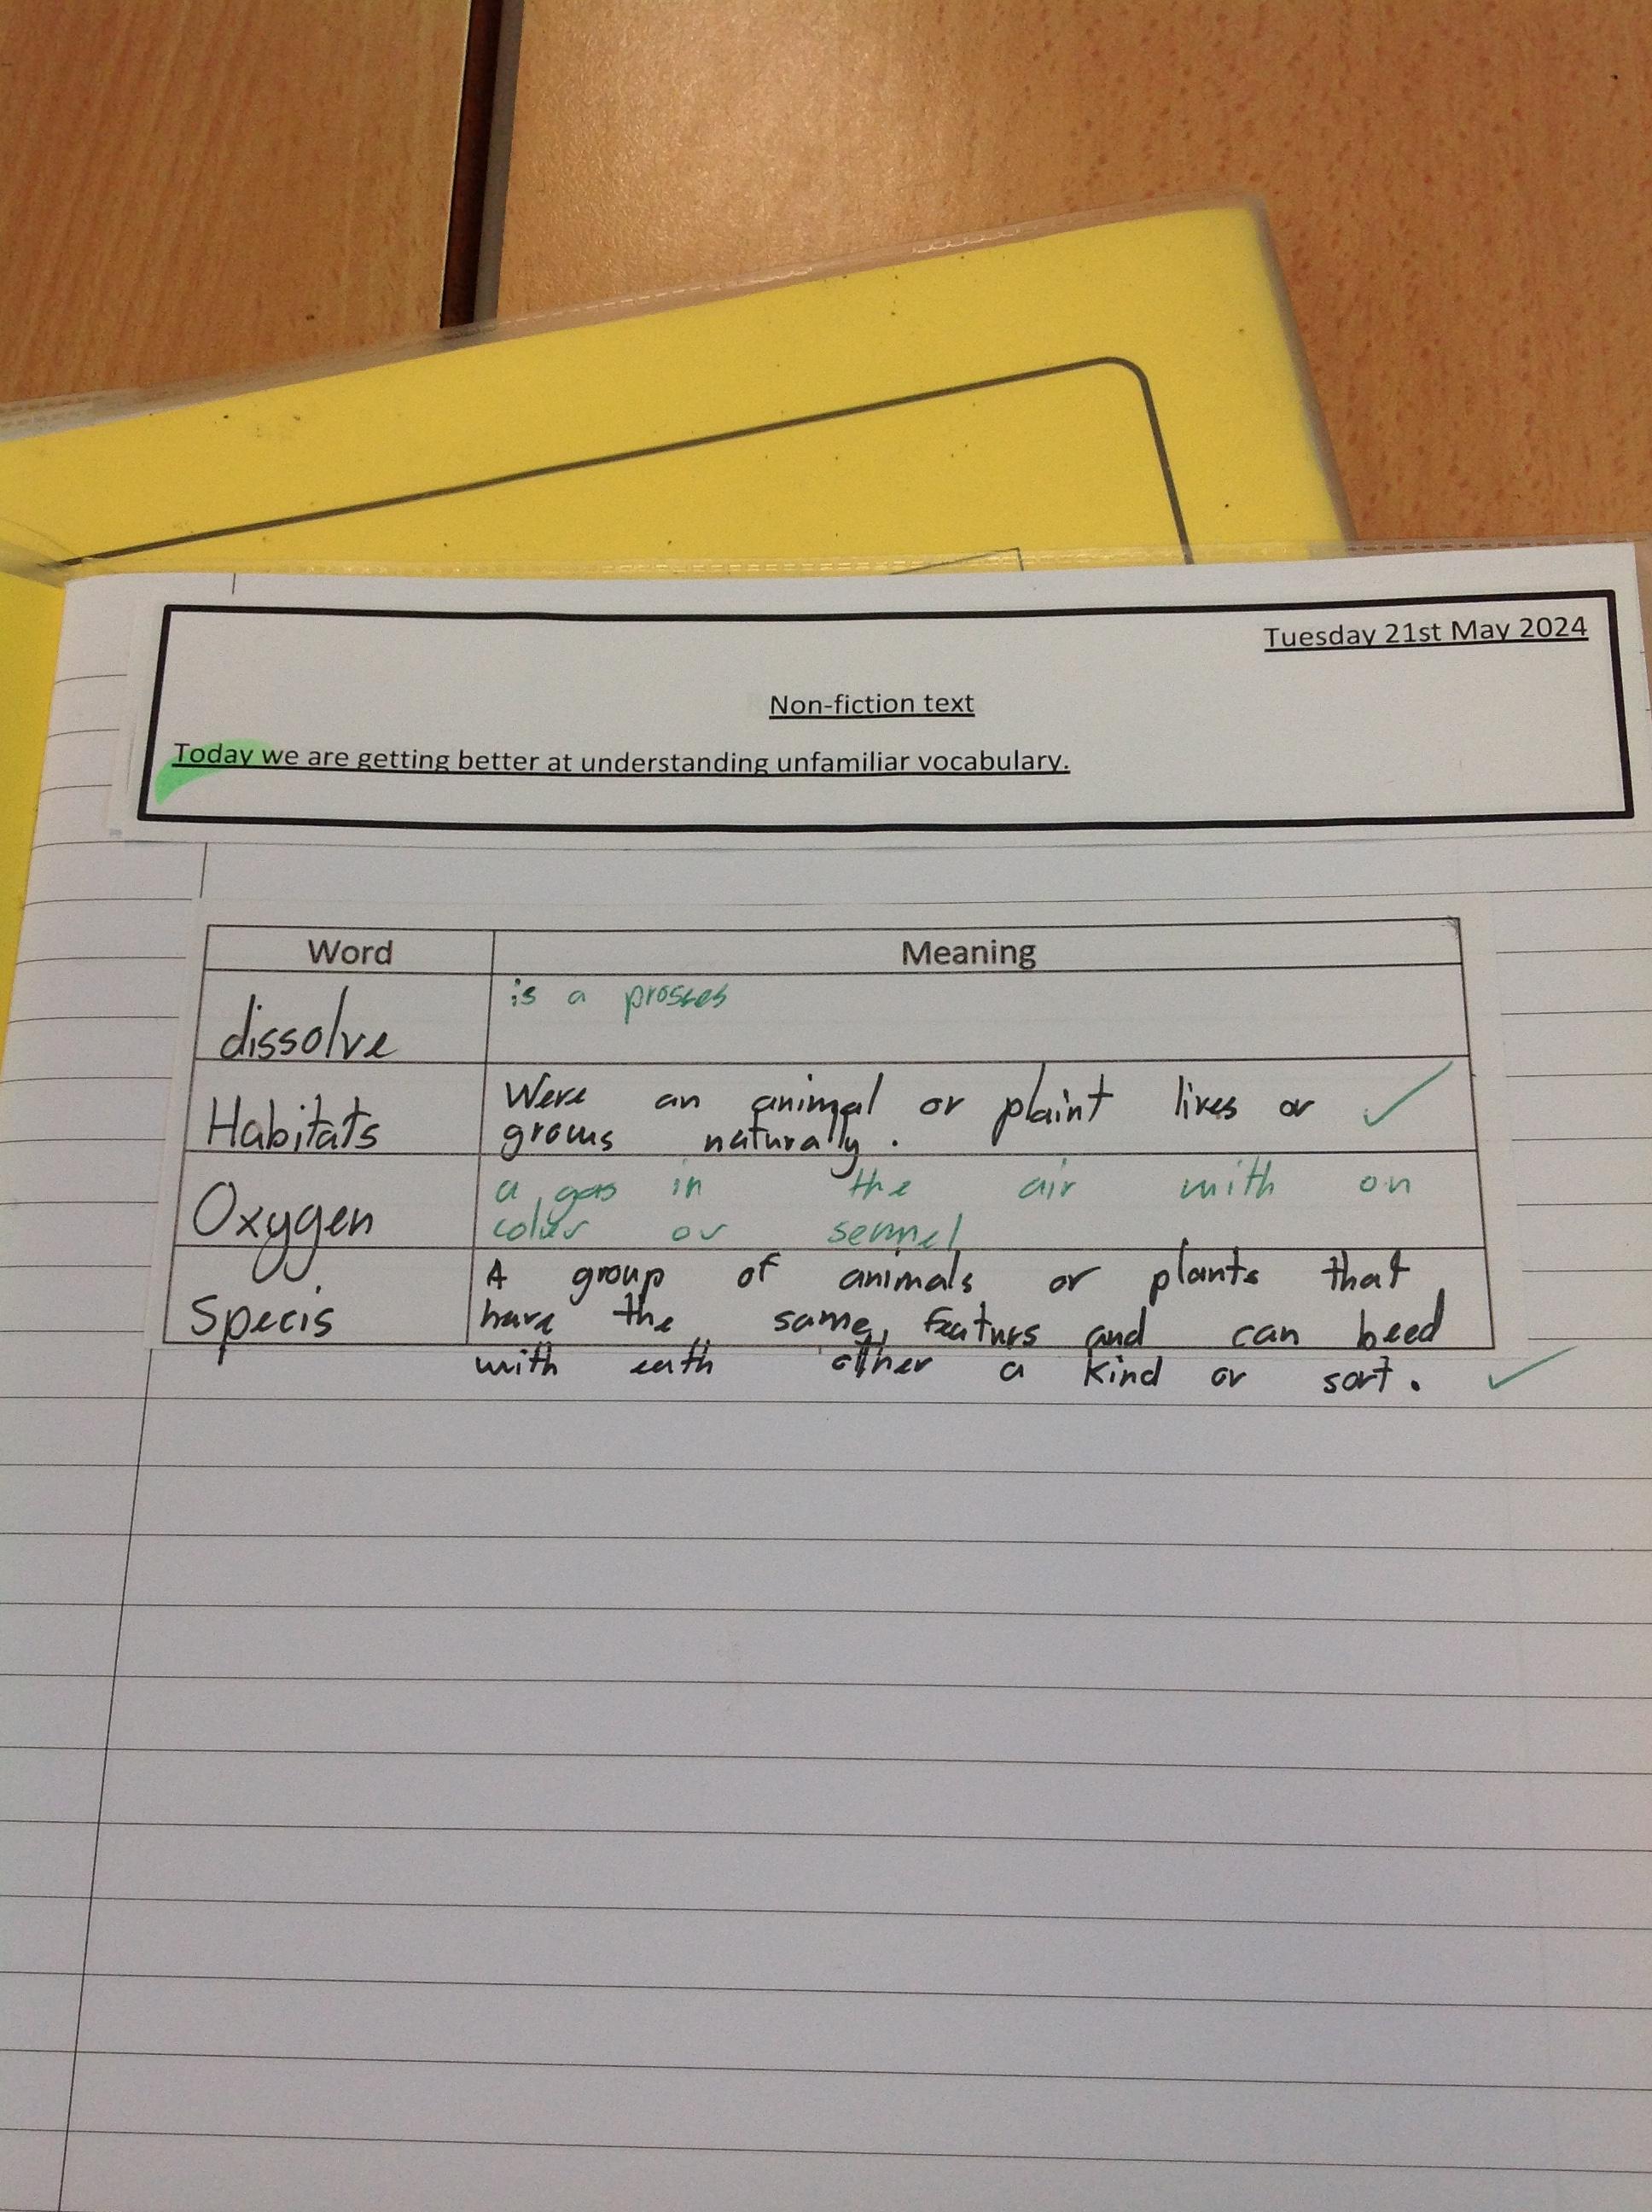 Tuesday 21st May 2024
Non-fiction text
Today we are getting better at understanding unfamiliar vocabulary.
Word Meaning
dissolve is a prosses
Habitats Were an animal or plaint lives or
grows naturally.
Oxygen a gas in the air with on
colur or semmel
Specis A group of animals or plants that
have the same, featurs and can beed
with eath other a kind or sort.